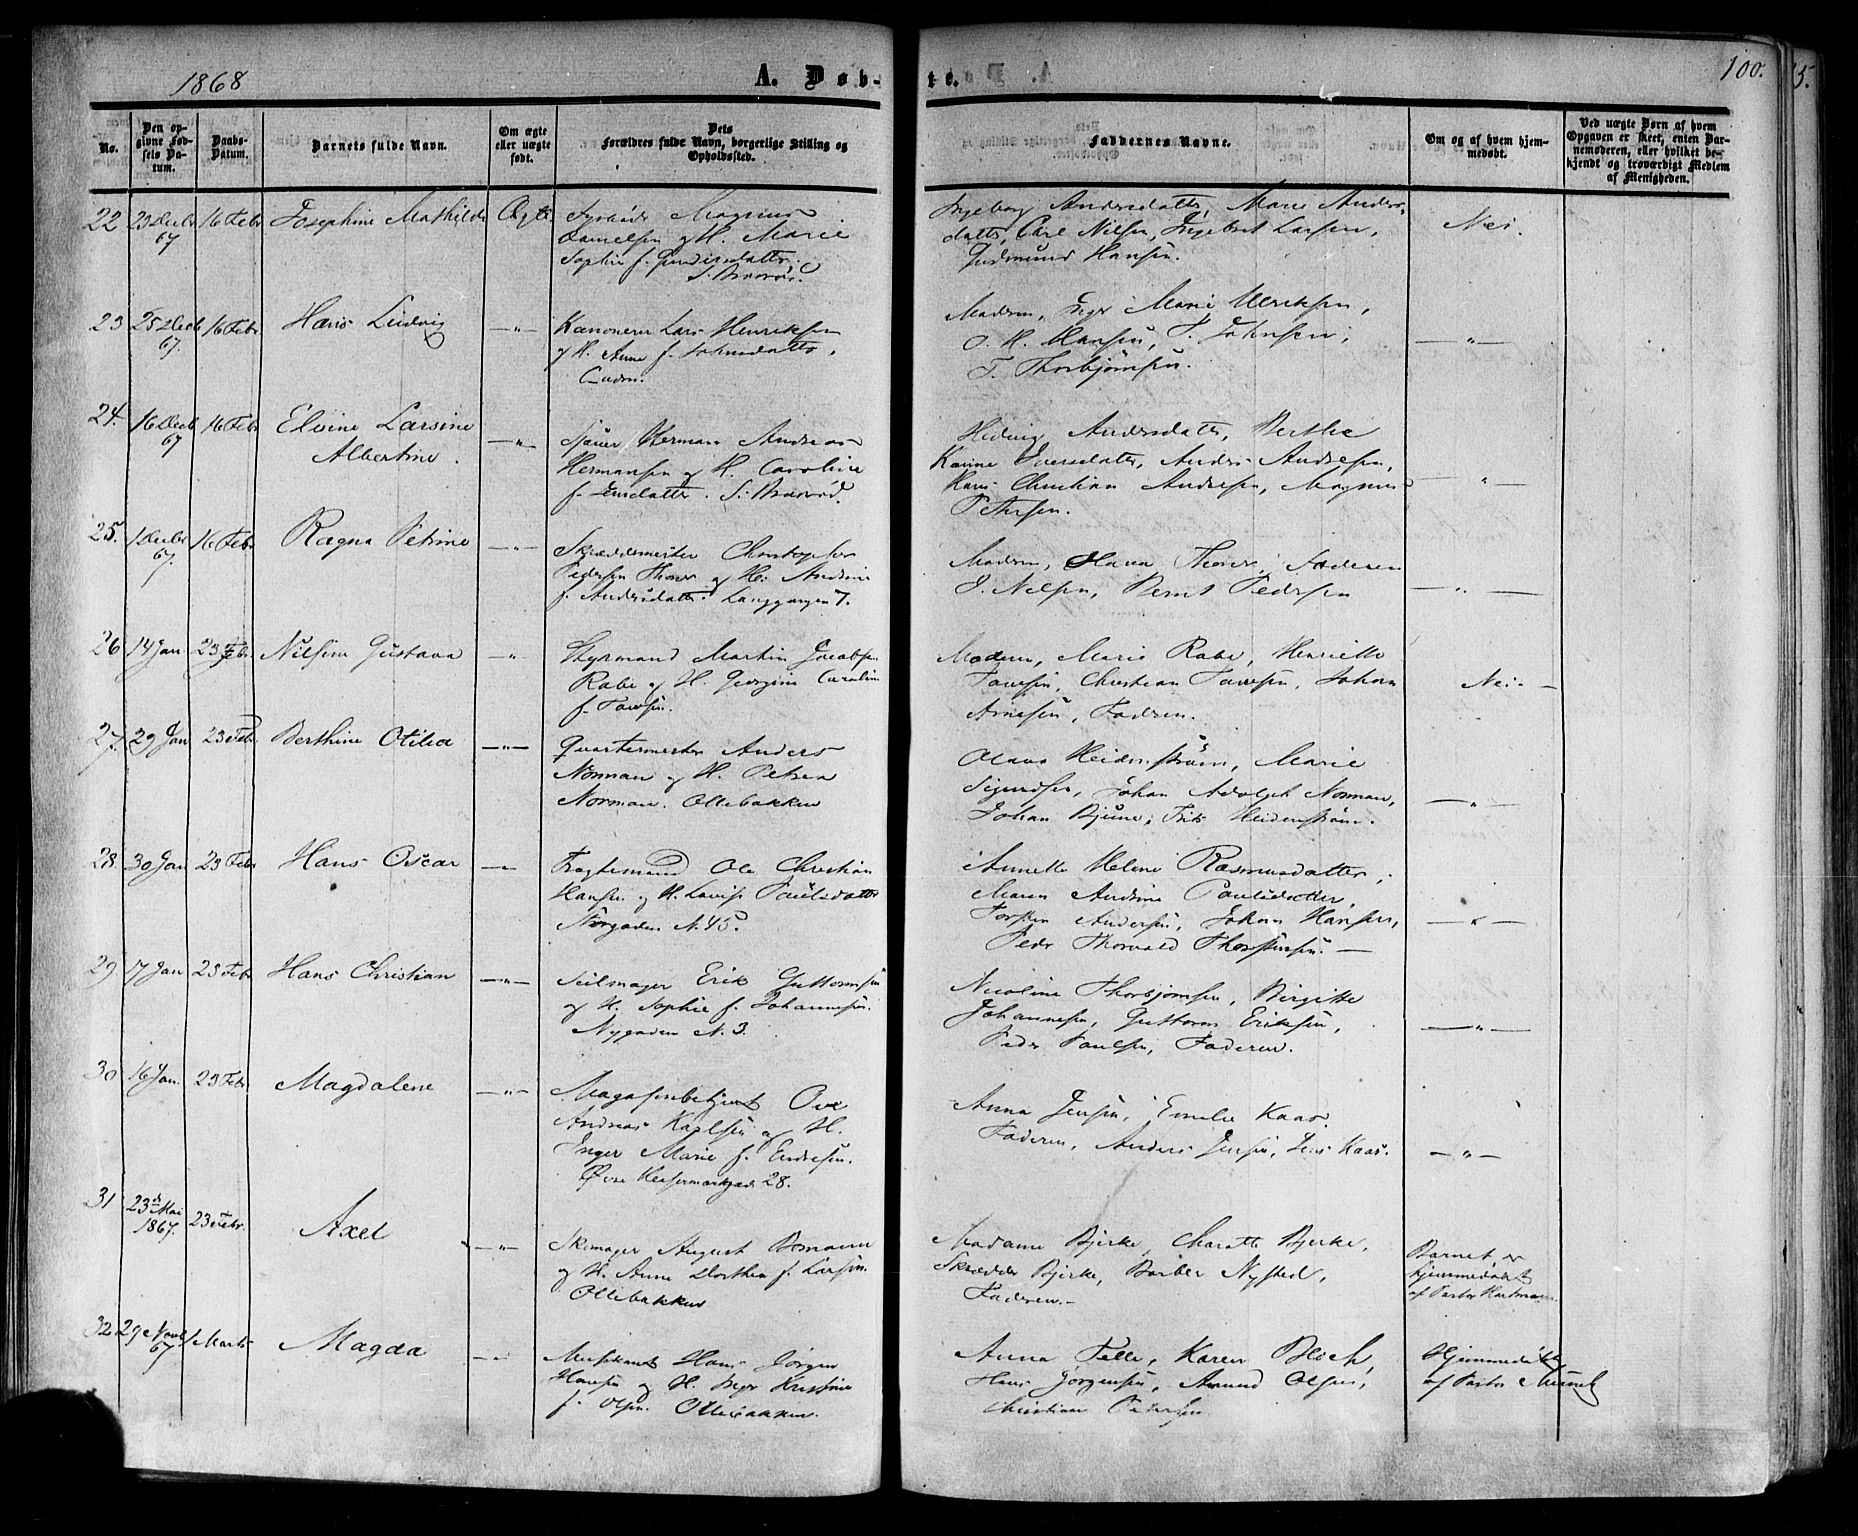 1868
A. Døb-
te.
100.
5.
No.
Den op-
givne Fød-
sels Da-
tum.
Daabs-
Datum.
Barnets fulde Navn.
Om ægte
eller uægte
født.
Dets
Forældres fulde Navn, borgerlige Stilling og
Opholdssted.
Faddernes Navne.
Om og af hvem hjem-
medøbt.
Ved uægte Børn af hvem
Opgaven er skeet, enten Bar-
nemoderen, eller hvilket be-
kjendt og troværdigt Medlem
af Menigheden.
22 23 Decbr 16 Febr Josephine Mathilde Ægte Magnus
67
og H. Marie
Sophie f.
Ingeborg Andersdatter, Marie Anders-
datter, Carl Nilsen, Ingebret Larsen,
Gudmund Hansen.
Nei.
23 25 Decb 16 Febr Hans Ludvig —"— Kanoneer Lars Henriksen
67.
og H. Anne f. Johnsdatter,
Moderen, Inger Marie Ulriksen,
J. H. Hansen, T. Johnsen,
T. Thorbjørnsen.
—"—
24. 16 Decb 16 Febr Elvine Larsine —"— Sjauer Herman Andreas
67
Albertine.
Hermansen og H. Caroline
f. Jensdatter.
Hedvig Andersdatter, Berthe
Karine Iversdatter, Anders Andresen,
Hans Christian Andresen, Magnus
Petersen.
—"—
25. 1 Decbr 16 Febr Ragna Petrine —"— Skræddermester Christopher
67.
Pedersen Thorer og H. Andrine
f. Andersdatter. Langgangen 7.
Moderen, Hana Thorer, Faderen
J. Nilsen, Bernt Pedersen
—"—
26 14 Jan 23 Febr. Nilsine Gustava " Styrmand Martin Jacobsen
Rabe og H. Georgine Caroline
f.
Moderen, Marie Rabe, Henriette
Christian Johan
Arnesen, Faderen.
Nei. —
27. 29 Jan 23 Febr. Berthine Otilia —"— Quartermester Anders
Norman og H. Petrea
Norman. Ollebakken
Olava Heidenstrøm, Marie
Sigurdsen, Johan Adolph Norman,
Johan Bjune, Frits Heidenstrøm.
—"—
28. 30 Jan 23 Febr Hans Oscar —"— Fragtemand Ole Christian
Hansen og H. Lovise Paulsdatter
Nørgaden N. 45.
Annette Helene Rasmusdatter,
Maren Andrine Paulsdatter,
Torsten Andersen, Johan Hansen,
Peder Thorvald Thorstensen. —
—"—
29. 17 Jan 23 Febr Hans Christian —"— Seilmager Erik Guttormsen
og H. Sophie f. Johannesen.
Nygaden N. 3.
Nicoline Thorbjørnsen, Birgitte
Johannesen, Guttorm Eriksen,
Peder Paulsen, Faderen.
—"—
30 16 Jan. 23 Febr Magdalene —"— Magasinbetjent Ove
Andreas Karlsen og H.
Inger Marie f. Endresen.
Øvre 28.
Anna Jensen, Emelie Kaas.
Faderen, Anders Jensen, Jens Kaas.
—"—
31 23d Mai 23 Febr. Axel —"— Skomager August Bomann
1867.
og H. Anne Dorthea f. Larsen.
Ollebakken
Madame Bjerke, Charlotte Bjerke,
Skrædder Bjerke, Barber Nysted,
Faderen. —
Barnet er
hjemmedøbt
af Pastor Hartmann
32 29 Novb 1 Marts Magda —"— Musikant Hans Jørgen
67
Hansen og H. Inger Kristine
f. Olsen. Ollebakken.
Anna Felle, Karen Bloch,
Hans Jørgensen, Amund Olsen,
Christian Petersen
Hjemmedøbt
af Pastor